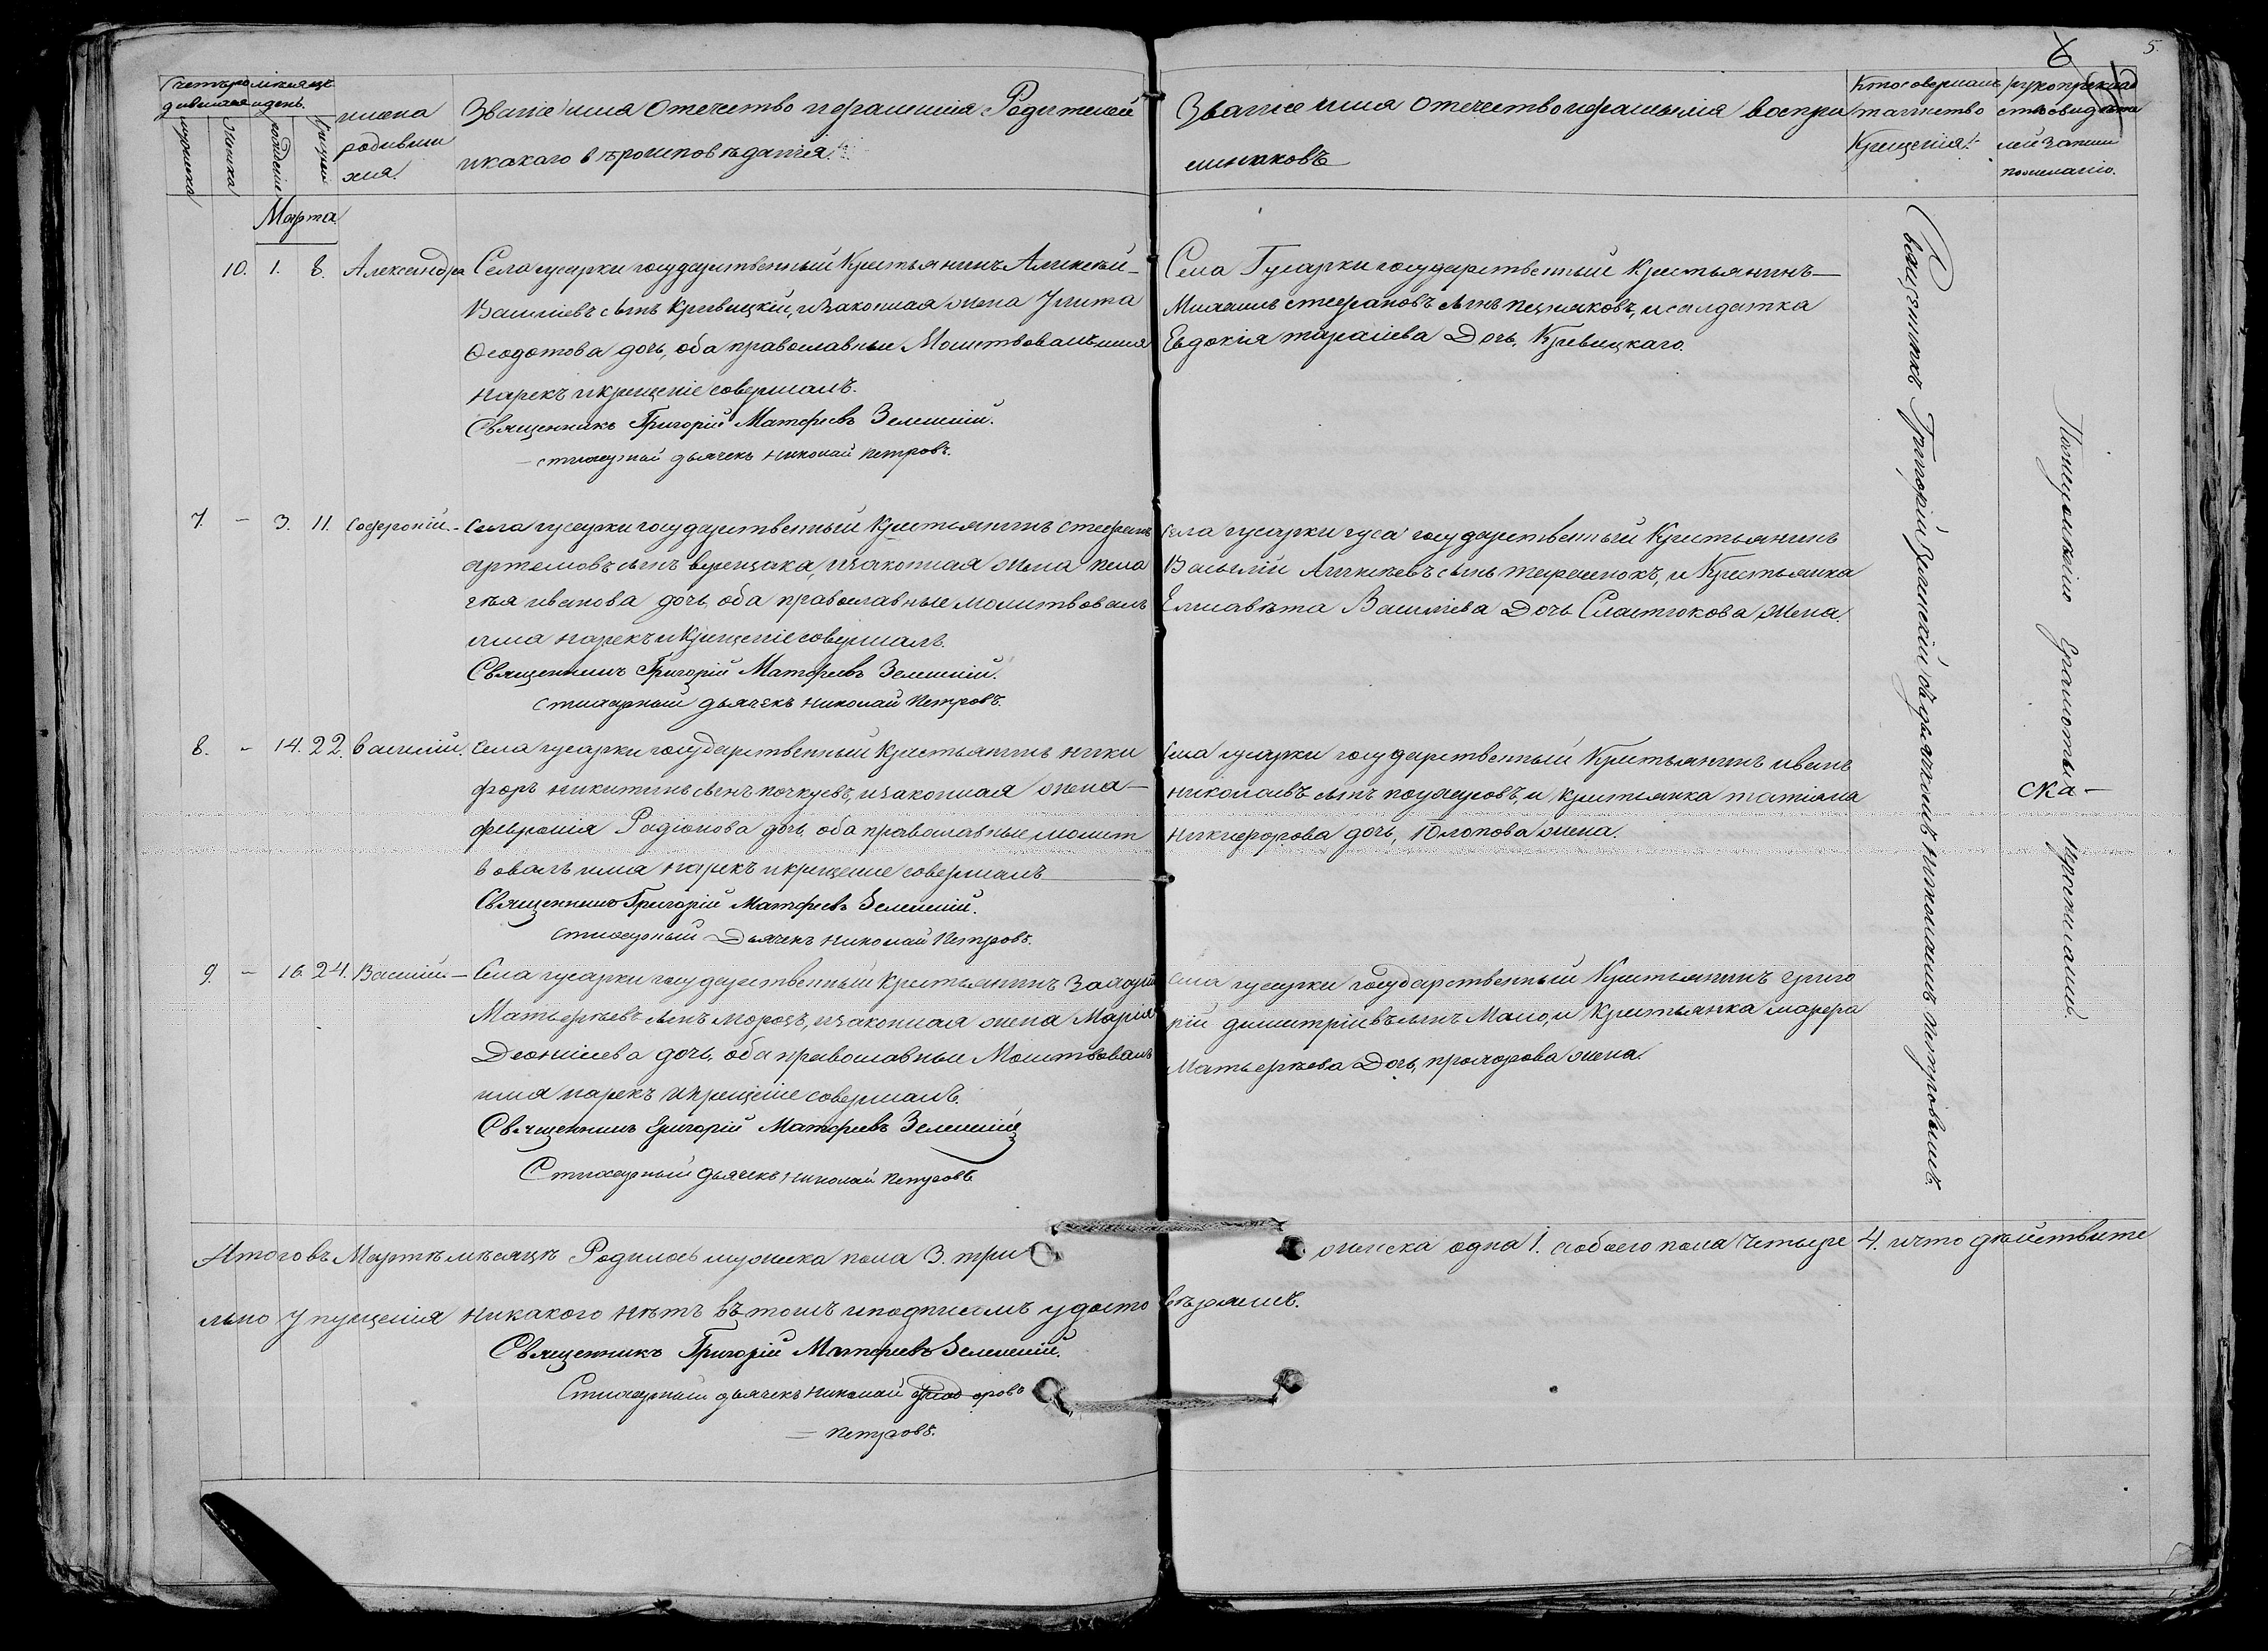 6 5.
Счетъ родившихся
мѣсяцъ и день.
мужеска
женска
рожденія
крещенія
имена
родивши
хся.
Званіе имя отечество и фамилія Родителей
и какаго вѣроисповѣданія.
Званіе имя отечество и фамилія воспри
емниковъ
Кто совершалъ
таинство
Крещенія.
рукоприклад
ство свидѣте
лей записи
по желанію.
Марта
10. 1. 8. Александра
Села гусарки государственный Крестьянинъ Алексѣй
Василіевъ сынъ Кривицкій, и законная жена Улита
Ѳеодотова дочь, оба православные Молитвовалъ имя
нарекъ и крещеніе совершалъ.
Священникъ Григорій Матфеевъ Зеленскій.
— стихарный дьячекъ николай петровъ.
Села Гусарки государственный Крестьянинъ —
Михаилъ стефановъ сынъ , и салдатка
Евдокія тарасіева Дочь, Кривицкаго.
7. – 3. 11. софроній. –
Села гусарки государственный Крестьянинъ стефанъ
артемовъ сынъ верещака, и законная жена пела
гѣя иванова дочь, оба православные молитвовалъ
имя нарекъ и Крещеніе совершалъ.
Священникъ Григорій Матфеевъ Зеленскій.
стихарный дьячекъ николай Петровъ.
села гусарки государственный Крестьянинъ
Василій Алексѣевъ сынъ тарасенокъ, и Крестьянка
Елисавѣта Василіева Дочь Сластюкова жена.
8. – 14. 22. василій.
села гусарки государственный Крестьянинъ ники
форъ никитинъ сынъ почкуевъ, и законная жена —
февронія Родіонова дочь, оба православные молит
вовалъ имя нарекъ и крещеніе совершалъ
Священникъ Григорій Матфеевъ Зеленскій.
стихарный Дьячекъ николай Петровъ.
села гусарки государственный Крестьянинъ иванъ
николаевъ сынъ , и крестьянка татіана
никифорова дочь, жена.
9. – 16. 24. Василій —
Села гусарки государственный Крестьянинъ Захарій
Матьефѣевъ сынъ морозъ, и законная жена Марія
Деонисіева дочь, оба православные Молитвовалъ
имя нарекъ и крещеніе совершалъ.
Священникъ Григорій Матфеевъ Зеленскій
Стихарный дьячекъ николай петровъ
села гусарки государственный Крестьянинъ григо
рій димитріевъ сынъ Мало, и Крестьянка марфа
Матьефѣева Дочь, прохорова жена.
Священникъ Григорій Зеленскій съ дьячкомъ николаемъ петровымъ.
По неумѣнію грамоты ска- кропилами.
Итого въ Мартѣ мѣсяцѣ Родилось мужеска пола 3. три женска одна 1. и обоего пола четыре 4. и что дѣйствите
льно упущенія никакого нѣтъ въ томъ и подписомъ удостовѣряемъ.
Священникъ Григорій Матфеевъ Зеленскій.
Стихарный дьячекъ николай
— петровъ.